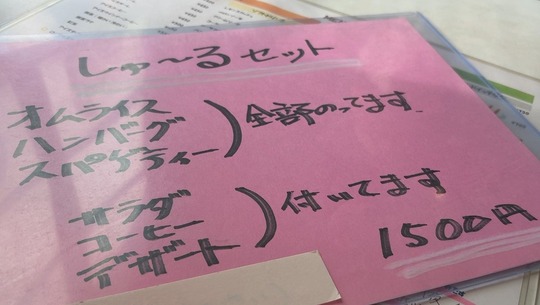 しゅ〜るセット
オムライス
ハンバーグ
スパゲティー
全部のってます
サラダ
コーヒー
デザート
付いてます
1500円